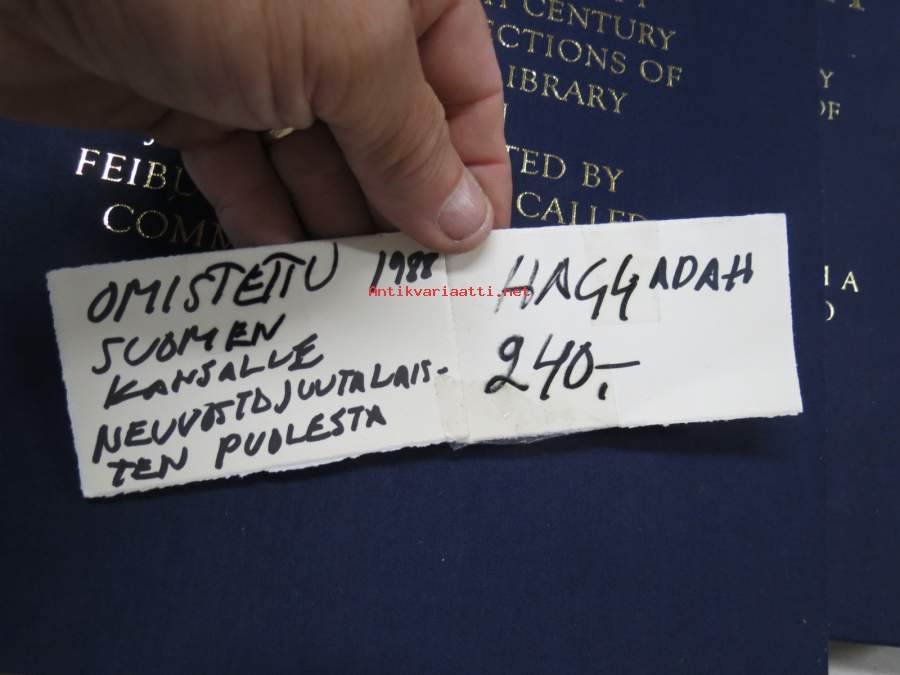 T CENTURY
CTIONS OF
IBRARY
TED BY
FEIBU
CALLED
COMM
Y
OF
H A
OMISTETTU 1988
SUOMEN
KANSALLE
NEUVOSTOJUUTALAIS-
TEN PUOLESTA
HAGGADAH
240,-
Antikvariaatti.net